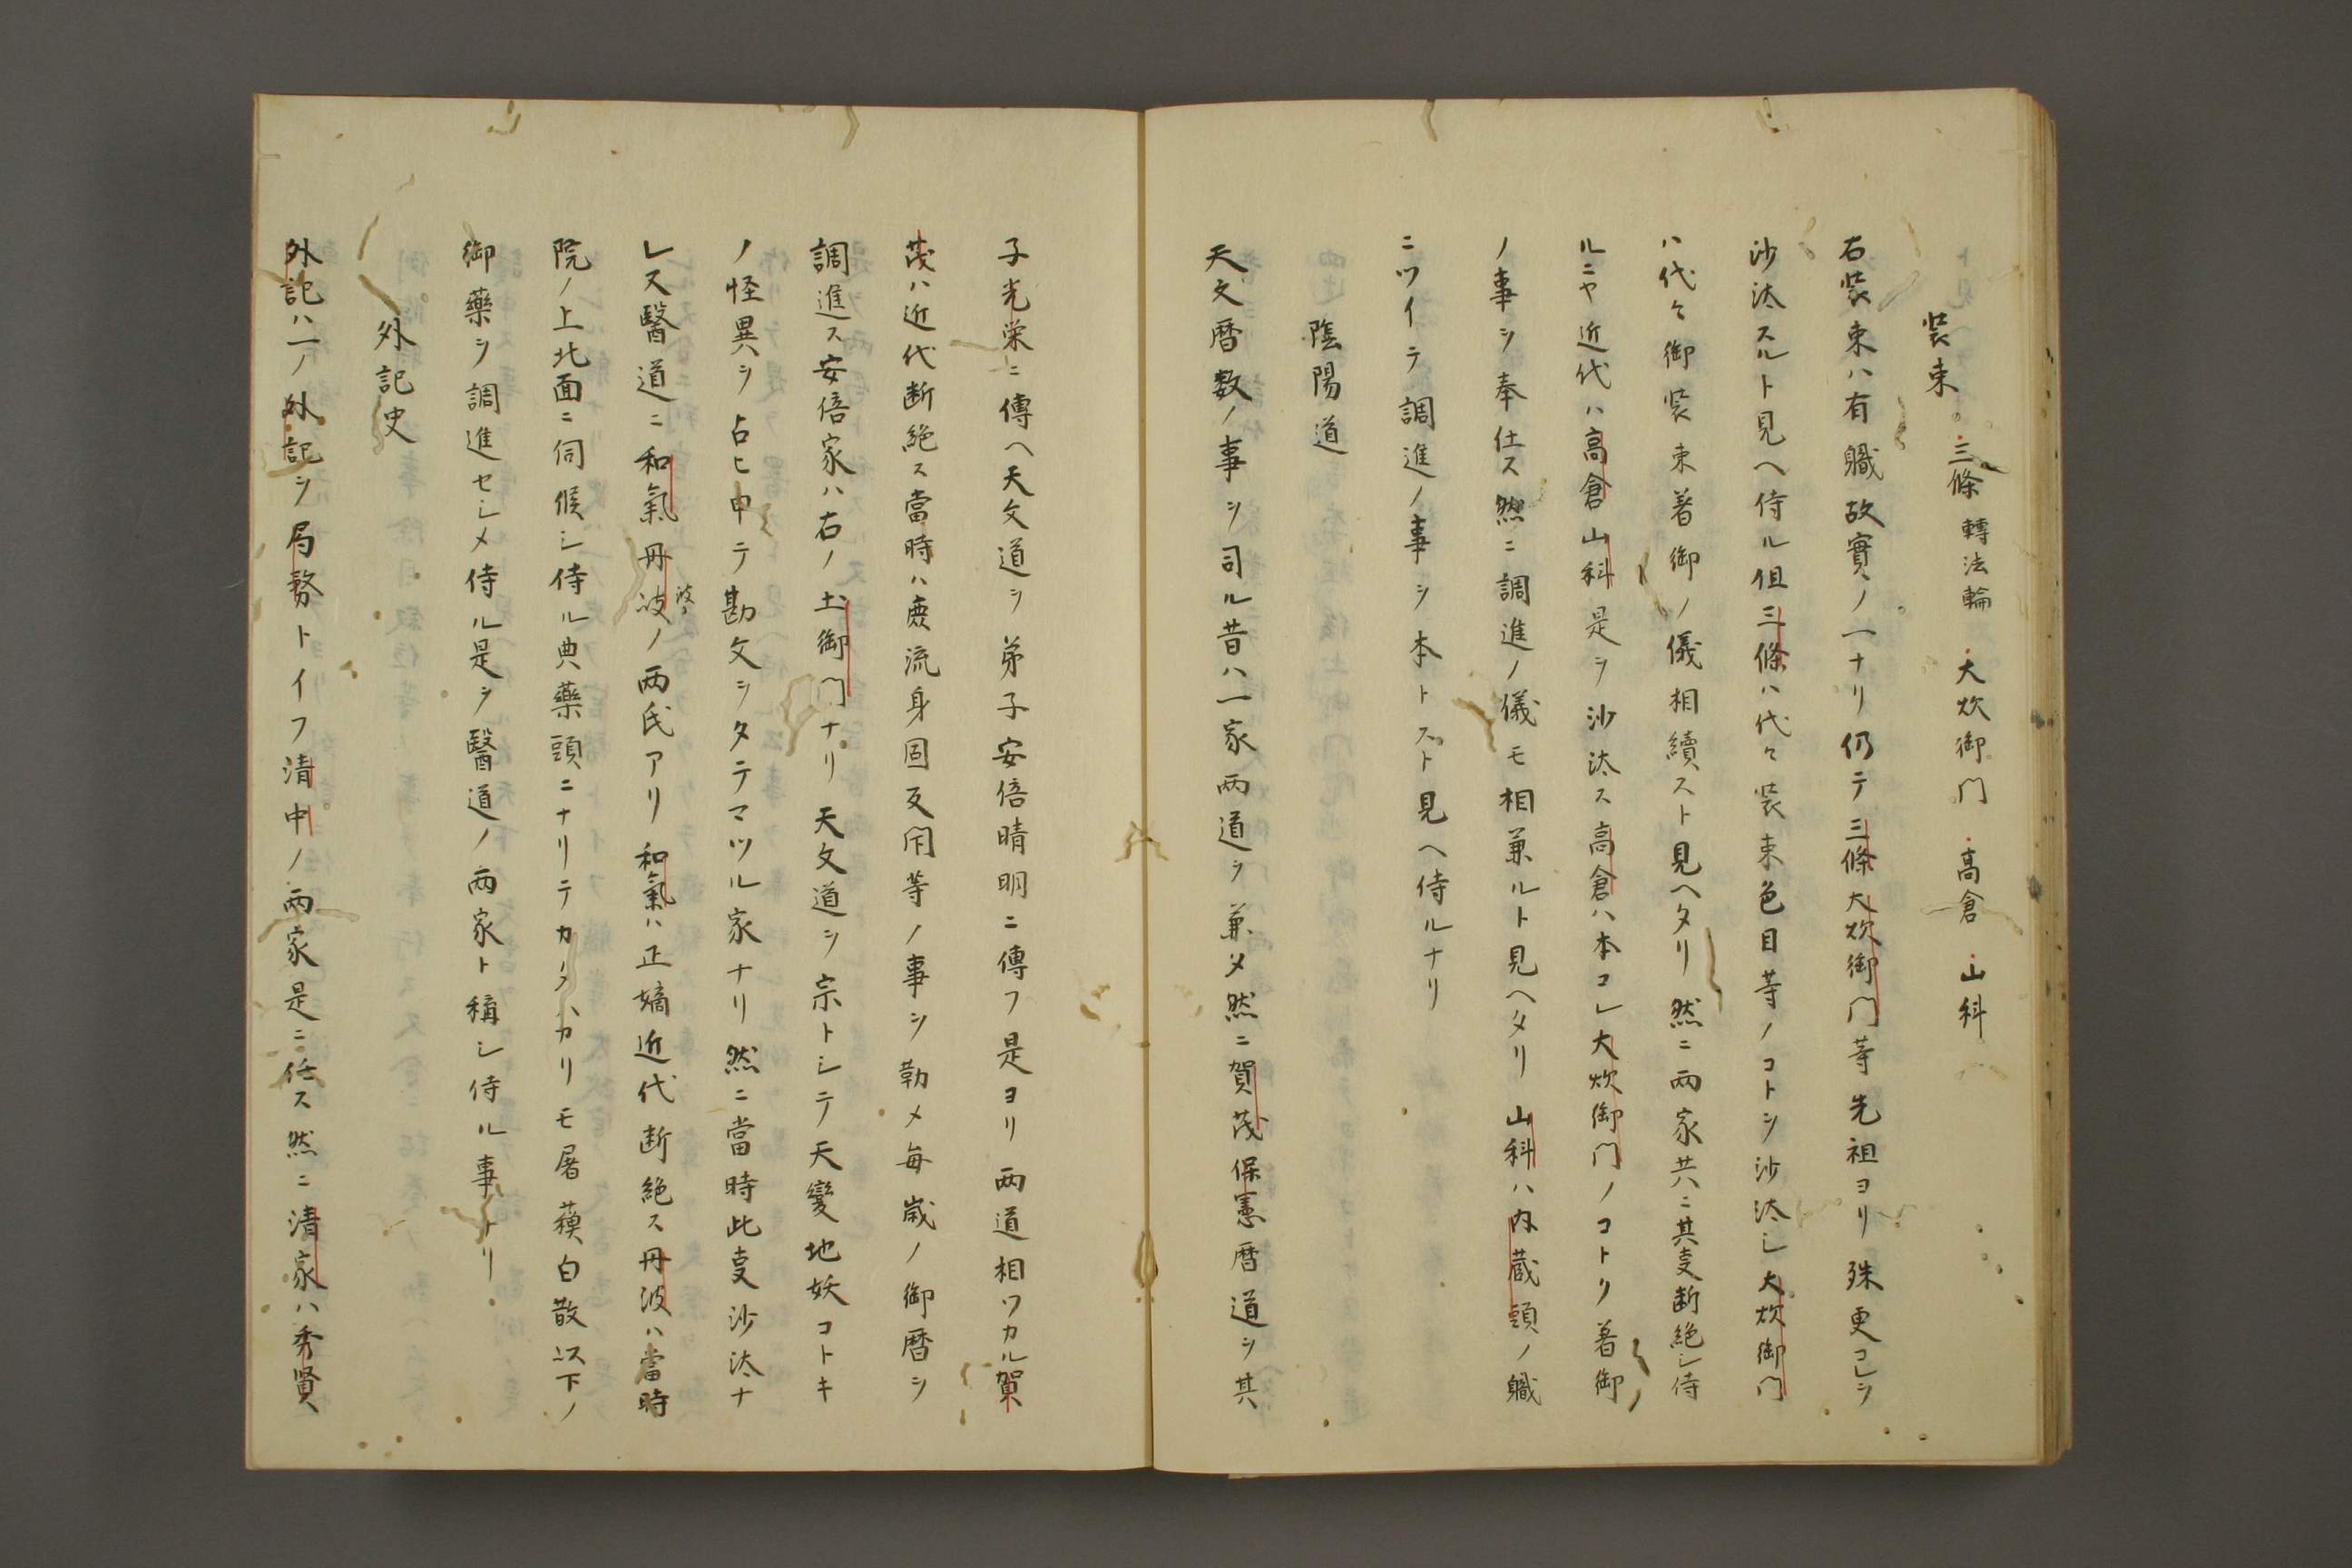 装束　三條 轉法輪　大炊御門　高倉　山科
右装束ハ有職故實ノ一ナリ仍テ三條大炊御門等先祖ヨリ殊更コレヲ
沙汰スルト見ヘ侍ル但三條ハ代々装束色目等ノコトヲ沙汰シ大炊御門
ハ代々御装束着御ノ儀相續スト見ヘタリ然ニ兩家共ニ其事断絶シ侍
ルニヤ近代ハ高倉山科是ヲ沙汰ス高倉ハ本コレ大炊御門ノコトリ着御
ノ事ヲ奉仕ス然ニ調進ノ儀モ相兼ルト見ヘタリ山科ハ内蔵頭ノ職
ニツイテ調進ノ事ヲ本トスト見ヘ侍ルナリ
陰陽道
天文暦数ノ事ヲ司ル昔ハ一家両道ヲ兼メ然ニ賀茂保憲暦道ヲ其
子光栄ニ傳ヘ天文道ヲ弟子安倍晴明ニ傳フ是ヨリ両道相ワカル賀
茂ハ近代断絶ス當時ハ庶流身固反閇等ノ事ヲ勤メ毎歳ノ御暦ヲ
調進ス安倍家ハ右ノ土御門ナリ天文道ヲ宗トシテ天變地妖コトキ
ノ怪異ヲ占ヒ申テ勘文ヲタテマツル家ナリ然ニ當時此事沙汰ナ
レス醫道ニ和氣丹波ノ両氏アリ和氣ハ正嫡近代断絶ス丹波ハ當時
院ノ上北面ニ伺候シ侍ル典藥頭ニナリテカタハカリモ屠蘓白散以下ノ
御藥ヲ調進セシメ侍ル是ヲ醫道ノ両家ト稱シ侍ル事トリ
外記史
外記ハ一ノ外記ヲ局務トイフ清中ノ両家是ニ任ス然ニ清家ハ秀賢